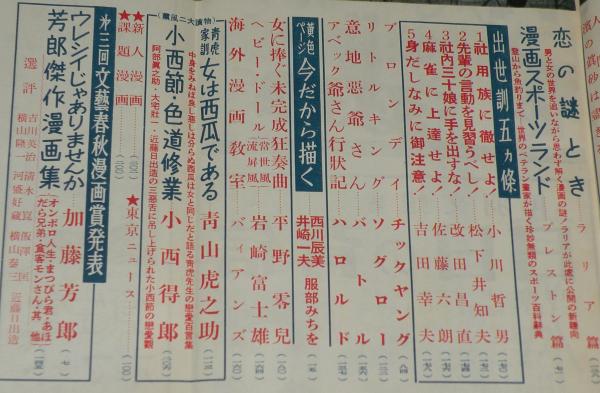 恋の謎とき
男と女の世界を追いながら思わず解く漫画の謎！ラリアが此處に公開の新趣向
ラリア篇
漫画スポーツランド
登山から魚釣りまで―世界のベテラン畫家が描く珍妙無類のスポーツ百科辭典
プレストン篇
出世訓五ヵ條
1社用族に徹せよ！
小川哲男
2先輩の言動を見習うべし！
松下井知夫
3社内三十娘に手を出すな！
改田昌直
4麻雀に上達せよ！
佐藤六朗
5身だしなみに御注意！
吉田幸夫
ブロンディ
チックヤング
リトルキング
ソグロー
意地惡爺さん
バトル
アベック爺さん行状記
ハロルド
黄色ページ
今だから描く
西川辰美
井崎一夫
服部みちを
女に捧ぐ未完成狂奏曲
平野零兒
ヘビー・ドール
當世風流屏風
岩崎富士雄
海外漫画教室
バィアンズ
青虎家訓
女は西瓜である
青山虎之助
中身をみねば良し悪しは分らぬ西瓜は女と同じだと語る青虎先生の戀愛百言集
小西節・色道修業
小西得郎
阿部眞之助・大宅壯一・近藤日出造の三惡舌に吊し上げられた小西節の戀愛觀
★新人漫画
★課題漫画
★東京ニュース
才三回文藝春秋漫画賞発表
ウレシイじゃありませんか
芳郎傑作漫画集
加藤芳郎
オンボロ人生・まっぴら君・あほだら兄弟・食客モンさん・其他
選評
吉川英治
横山隆一
清水崑
河盛好蔵
飯澤匡
横山泰三
近藤日出造